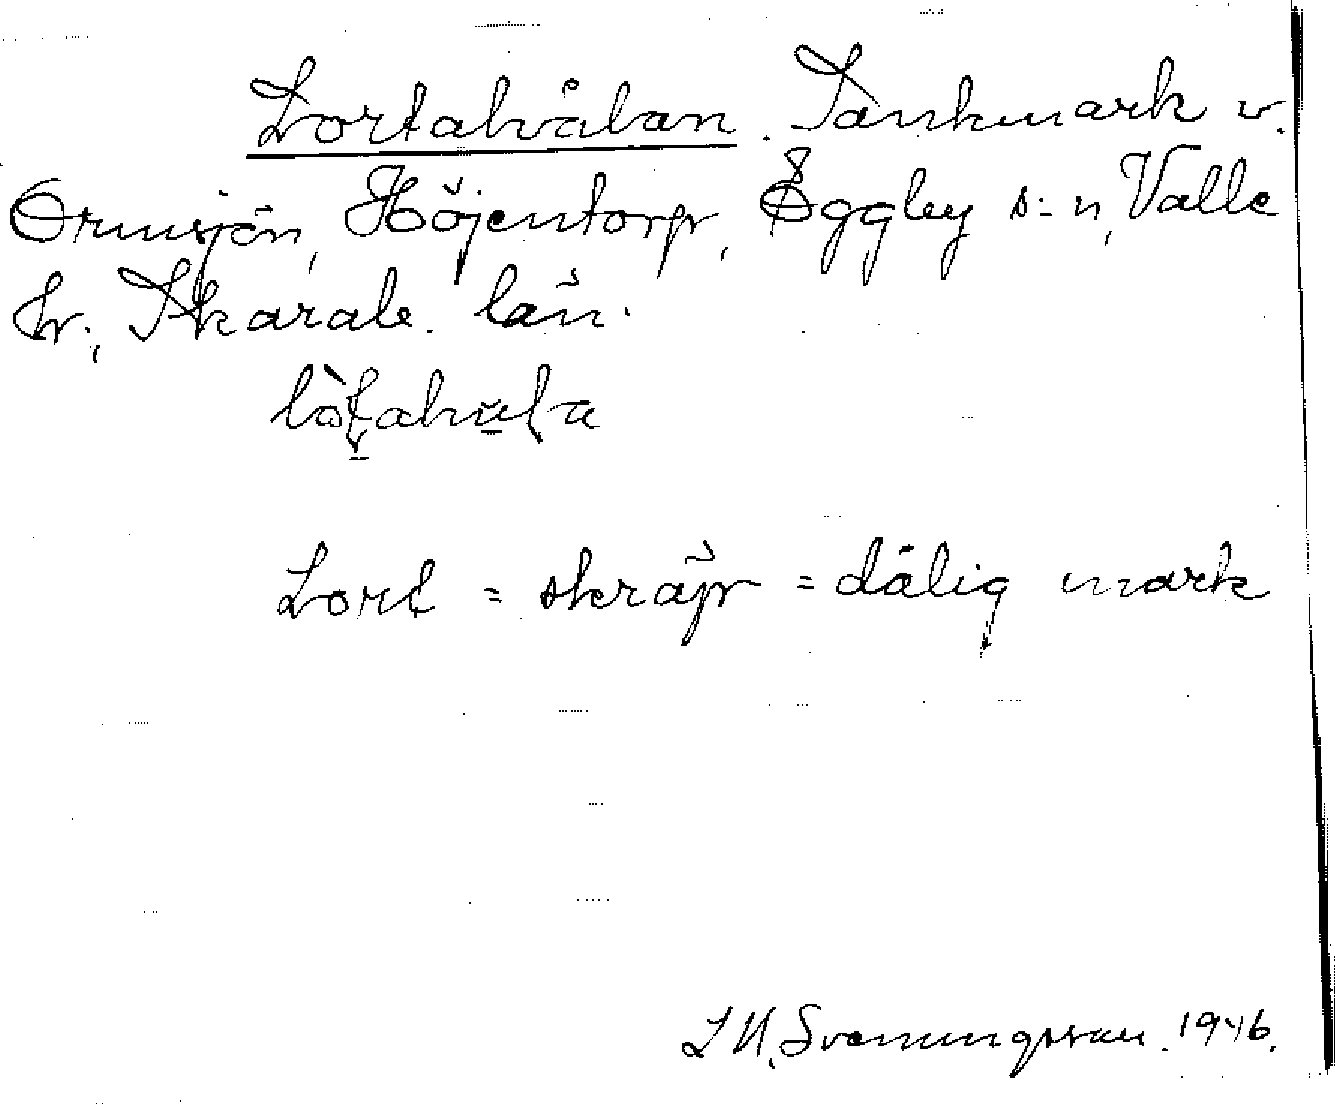 Lortahålan. Tankmark v.
Ormsjön, Höjentorp, Öggley s:n, Valle
hr., Skarab. län.
Lort = skräp = dålig mark
L N. Svenungsson. 1946.